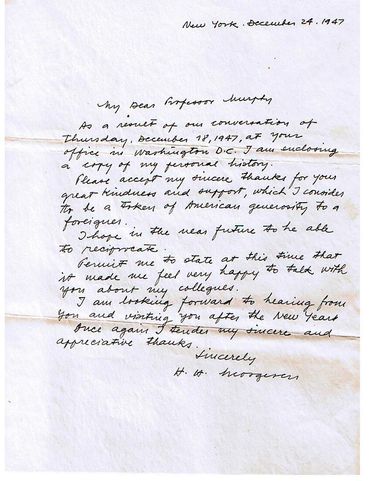 New York. December 24. 1947
My Dear Professor Murphy
As a result of our conversation of
Thursday, December 18, 1947, at your
office in Washington D.C. I am enclosing
a copy of my personal history.
Please accept my sincere thanks for your
great kindness and support, which I consider
to be a token of American generosity to a
foreigner.
I hope in the near future to be able
to reciprocate.
Permit me to state at this time that
it made me feel very happy to talk with
you about my collegues.
I am looking forward to hearing from
you and visiting you after the New Years
Once again I tender my sincere and
appreciative thanks.
Sincerely
H. H.